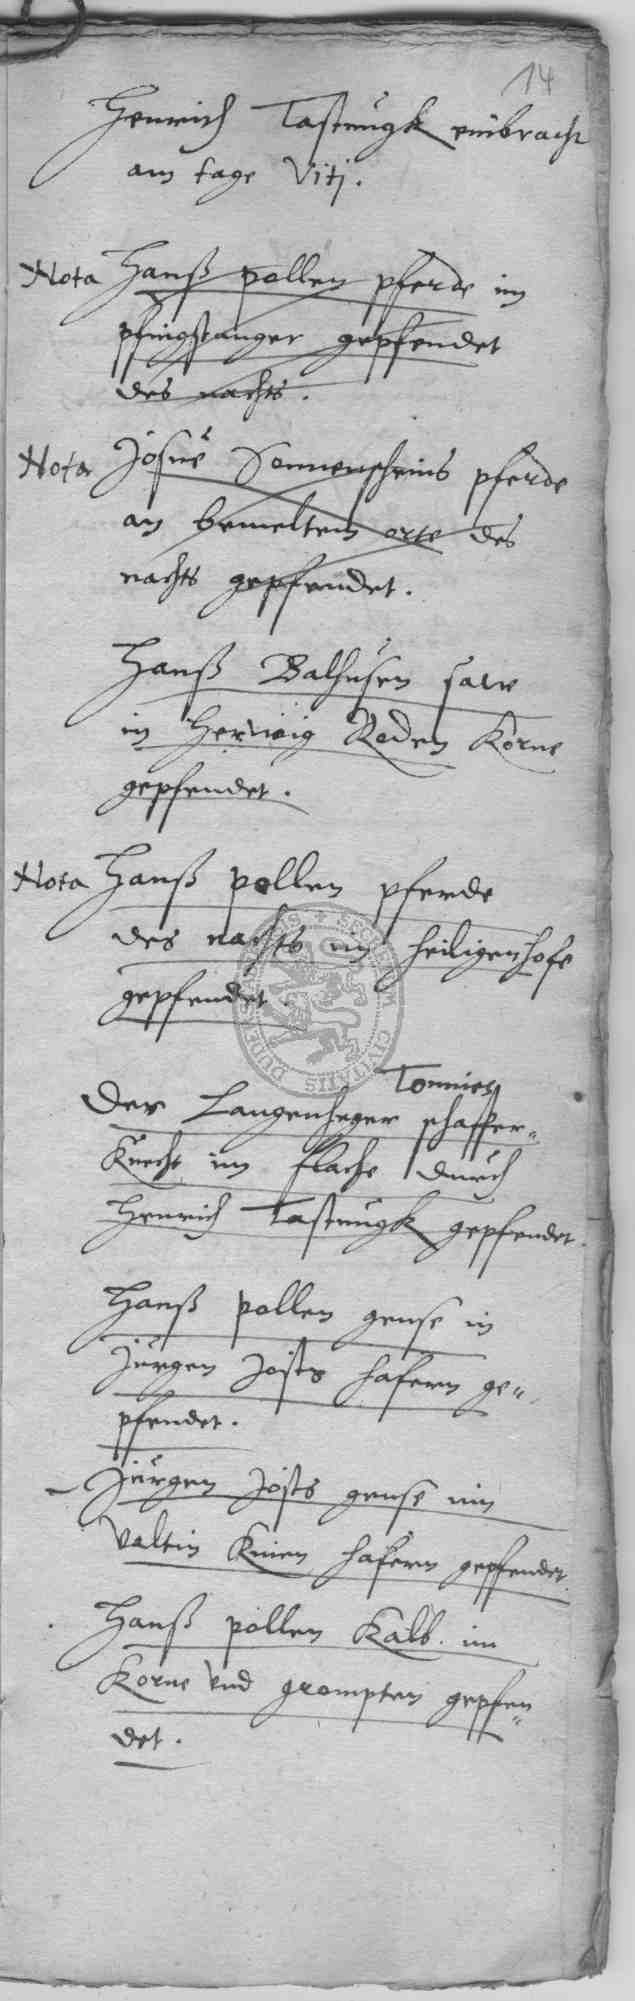 14
Henrich Tastungk einbracht
am tage Viti.
Nota Hanß pollen pferde im
pfingstanger gepfendet
des nachts.
Nota Josue Sonnenscheins pferde
an bemeltem orte des
nachts gepfendet.
Hanß Balhusen saw
in Herwig Roden Korne
gepfendet.
Nota Hanß pollen pferde
des nachts im heiligenhofe
gepfendet.
Tonnies
Der Langenheger schaffer-
Knecht im flachs durch
Henrich Tastungk gepfendet.
Hanß pollen gense in
Jurgen Josts hafern ge-
pfendet.
Jurgen Josts gense im
Valtin Knien hafern gepfendet.
Hanß pollen Kalb im
Korne vnd grompten gepfen-
det.